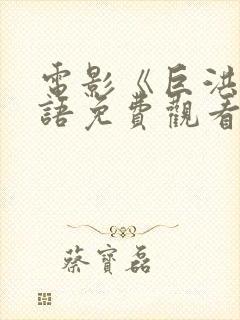 電影《巨洪
語免費觀看
蔡寶磊